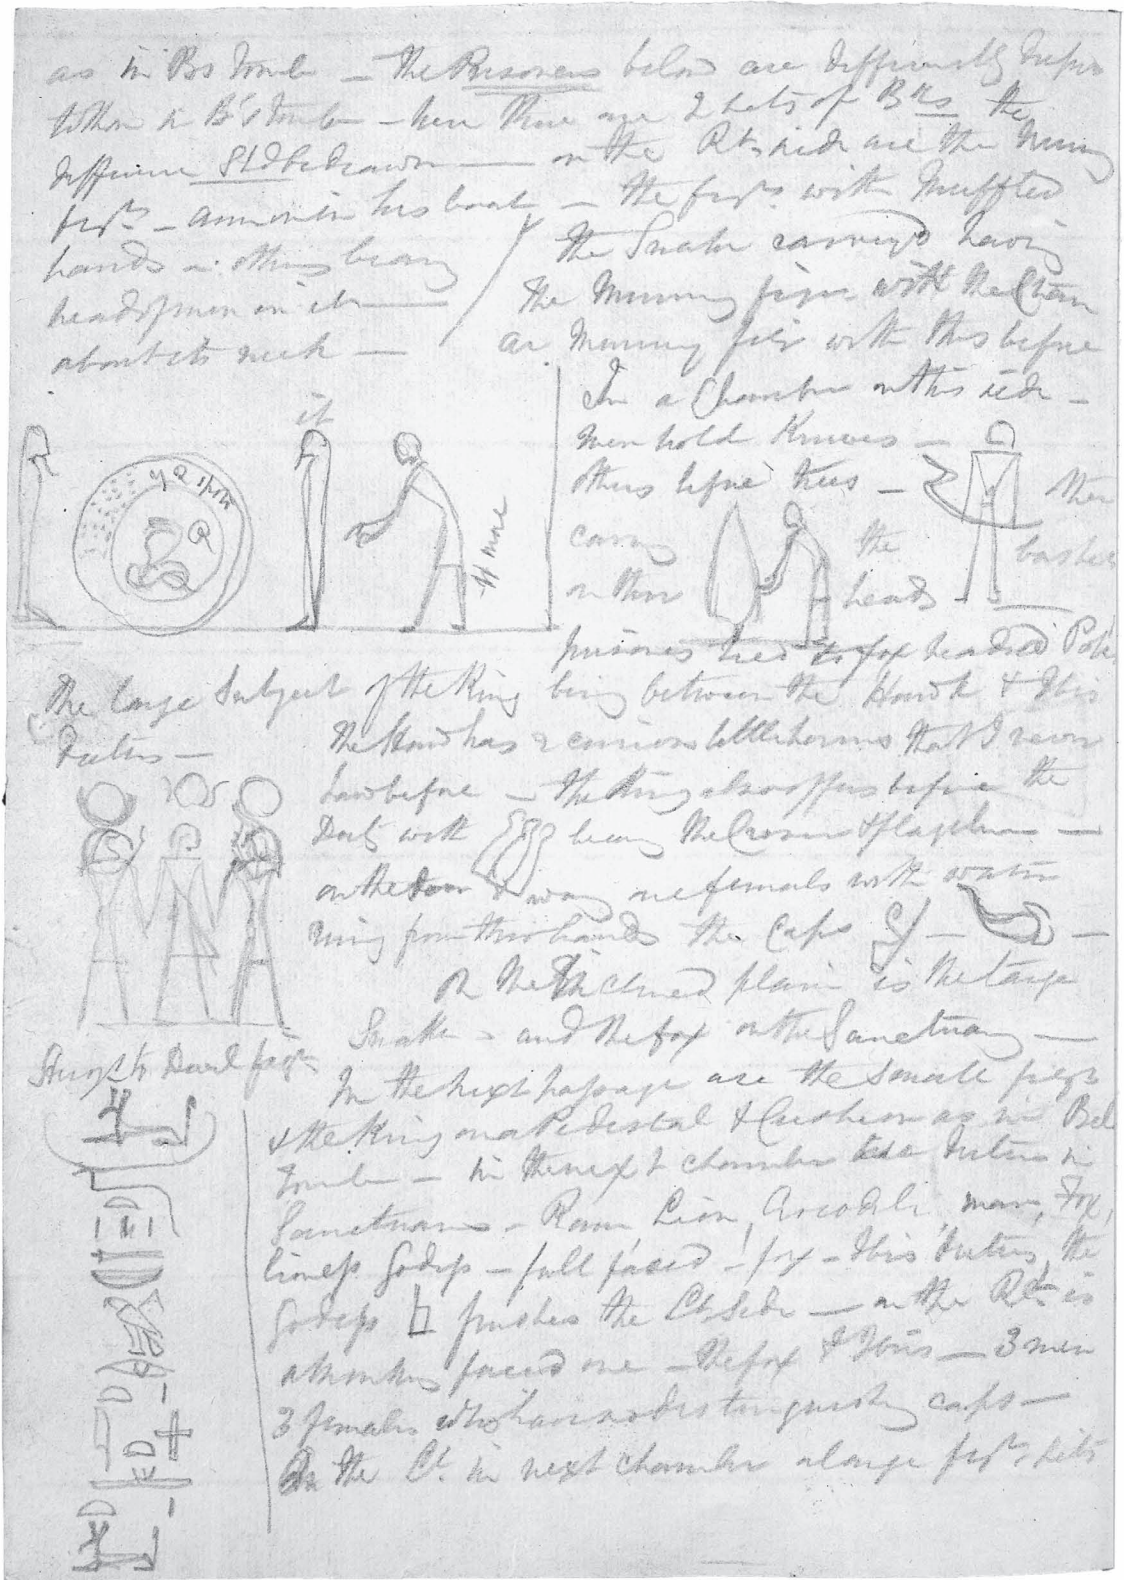 as in Bs Tomb — the Prisoners below are differently
to those in B's tomb — here there are 2 sets of Brs the
difference Sld be drawn — on the Rt side are the Mummy
figrs — ammon in his boat — the figrs with Muffled
hands — others
heads of men in it —
about its neck —
the Snake carrying having
the Mummy figr with the Chain
as Mummy figr with this before
it
of Q spots
In a Chamber on this side —
Men hold Knives —
others before trees — others
carry the baskets
on their heads —
4 more
prisoners tied to fox headed Pole
The large Subject of the King being between the Hawk & Ibis
Deities —
the Hawk has 2 curious little horns that I never
saw before — the King also offers before the
Deity with being the Crown & flagellum —
on the door way are females with water
ring from their hands the Caps — —
on the Inclined plain is the large
Snake — and the fox on the Sanctuary —
figr
In the next passage are the small figrs
& the King on a Pedestal & Cushion as in Bel
Tomb — in the next chamber Deities in
Sanctuaries — Ram, Lion, Crocodile, man, Fox,
lioness Godess — full faced — fox — Ibis Deities, the
Godess finishes the Lt Side — on the Rt is
a Monkey faced one — the fox & Ibis — 3 men
3 females who have no distinguishing caps —
On the Lt in next chamber a large figr sits